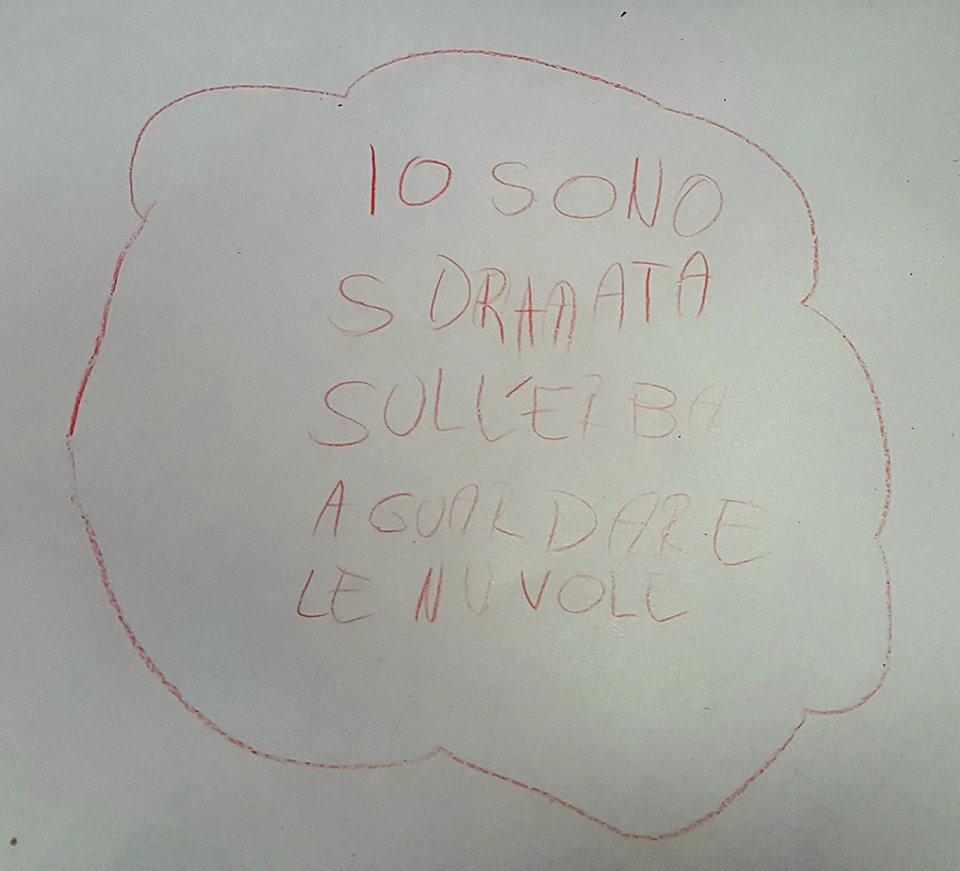 IO SONO
SDRAAATA
SULL'ERBA
A GUARDARE
LE NUVOLE